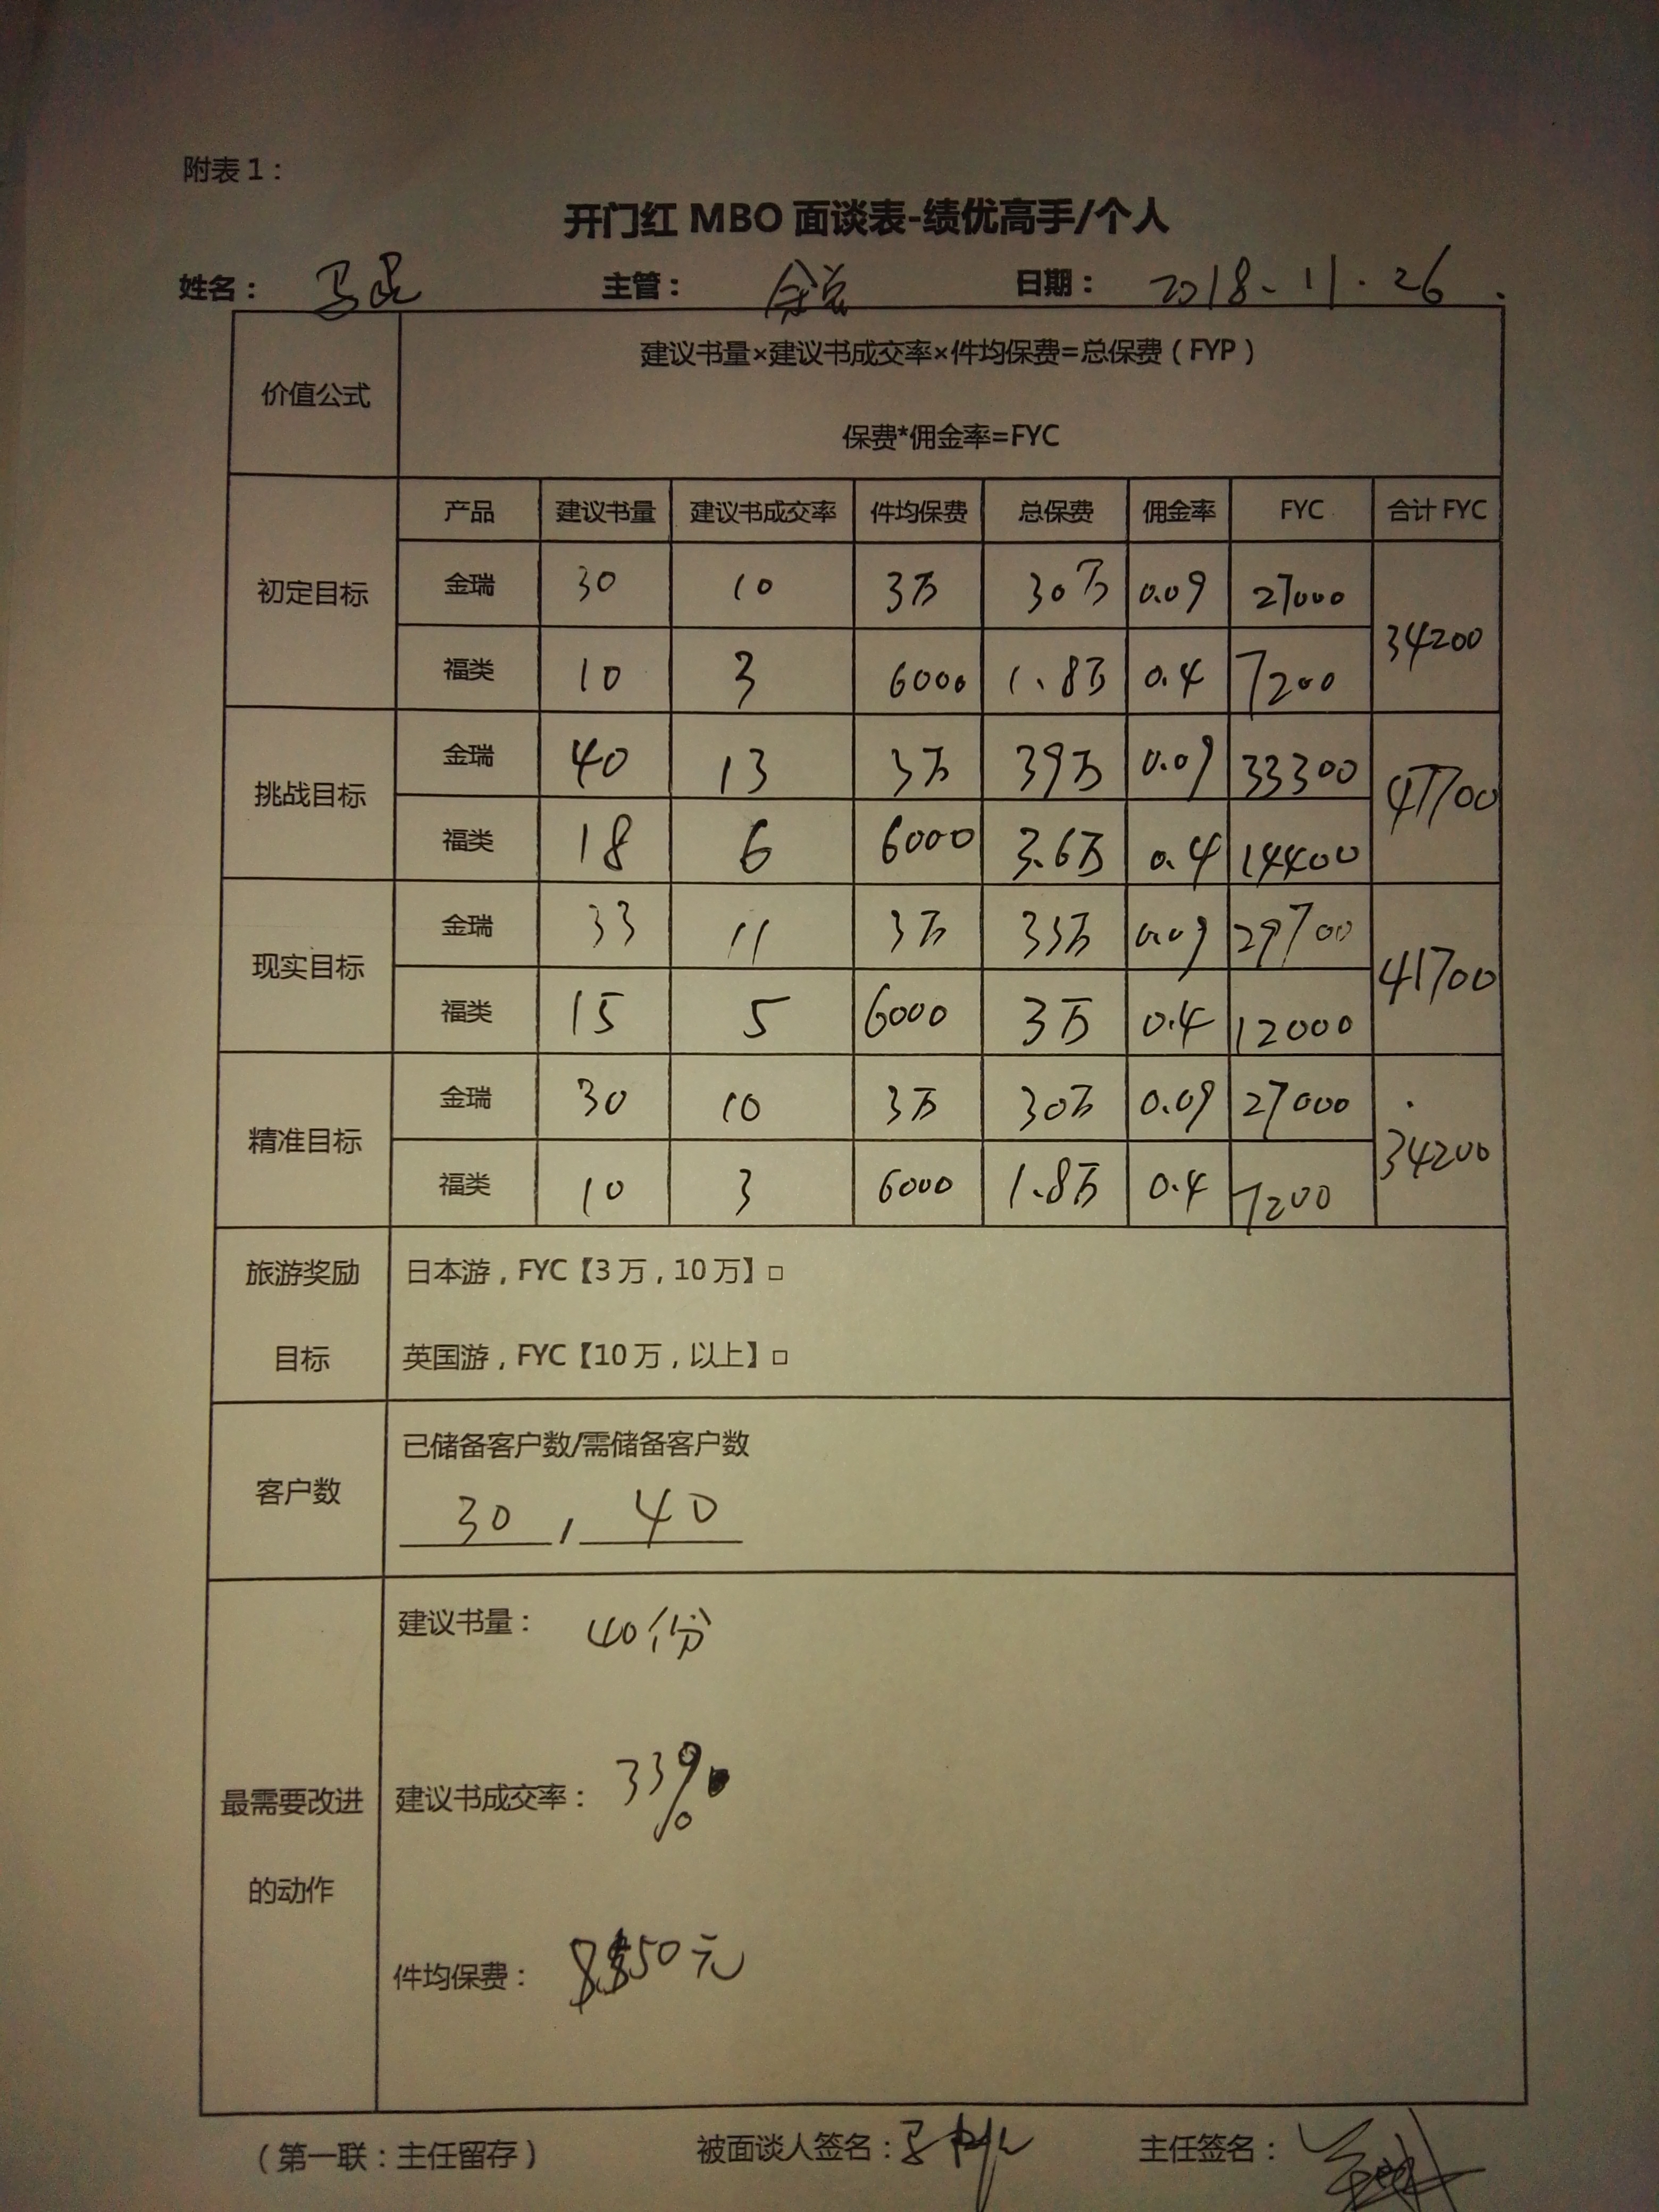 附表1：
开门红MBO面谈表-绩优高手/个人
姓名： 主管： 日期： 2018.11.26.
价值公式
建议书量×建议书成交率×件均保费=总保费（FYP）
保费*佣金率=FYC
产品 建议书量 建议书成交率 件均保费 总保费 佣金率 FYC 合计FYC
初定目标
金瑞 30 10 3万 30万 0.09 27000
34200
福类 10 3 6000 1.8万 0.4 7200
挑战目标
金瑞 40 13 3万 39万 0.09 33300
47700
福类 18 6 6000 3.6万 0.4 14400
现实目标
金瑞 33 11 3万 33万 0.09 29700
41700
福类 15 5 6000 3万 0.4 12000
精准目标
金瑞 30 10 3万 30万 0.09 27000
34200
福类 10 3 6000 1.8万 0.4 7200
旅游奖励
目标
日本游，FYC【3万，10万】□
英国游，FYC【10万，以上】□
客户数
已储备客户数/需储备客户数
30 , 40
最需要改进
的动作
建议书量： 40份
建议书成交率： 33%
件均保费： 元
（第一联：主任留存） 被面谈人签名： 主任签名：